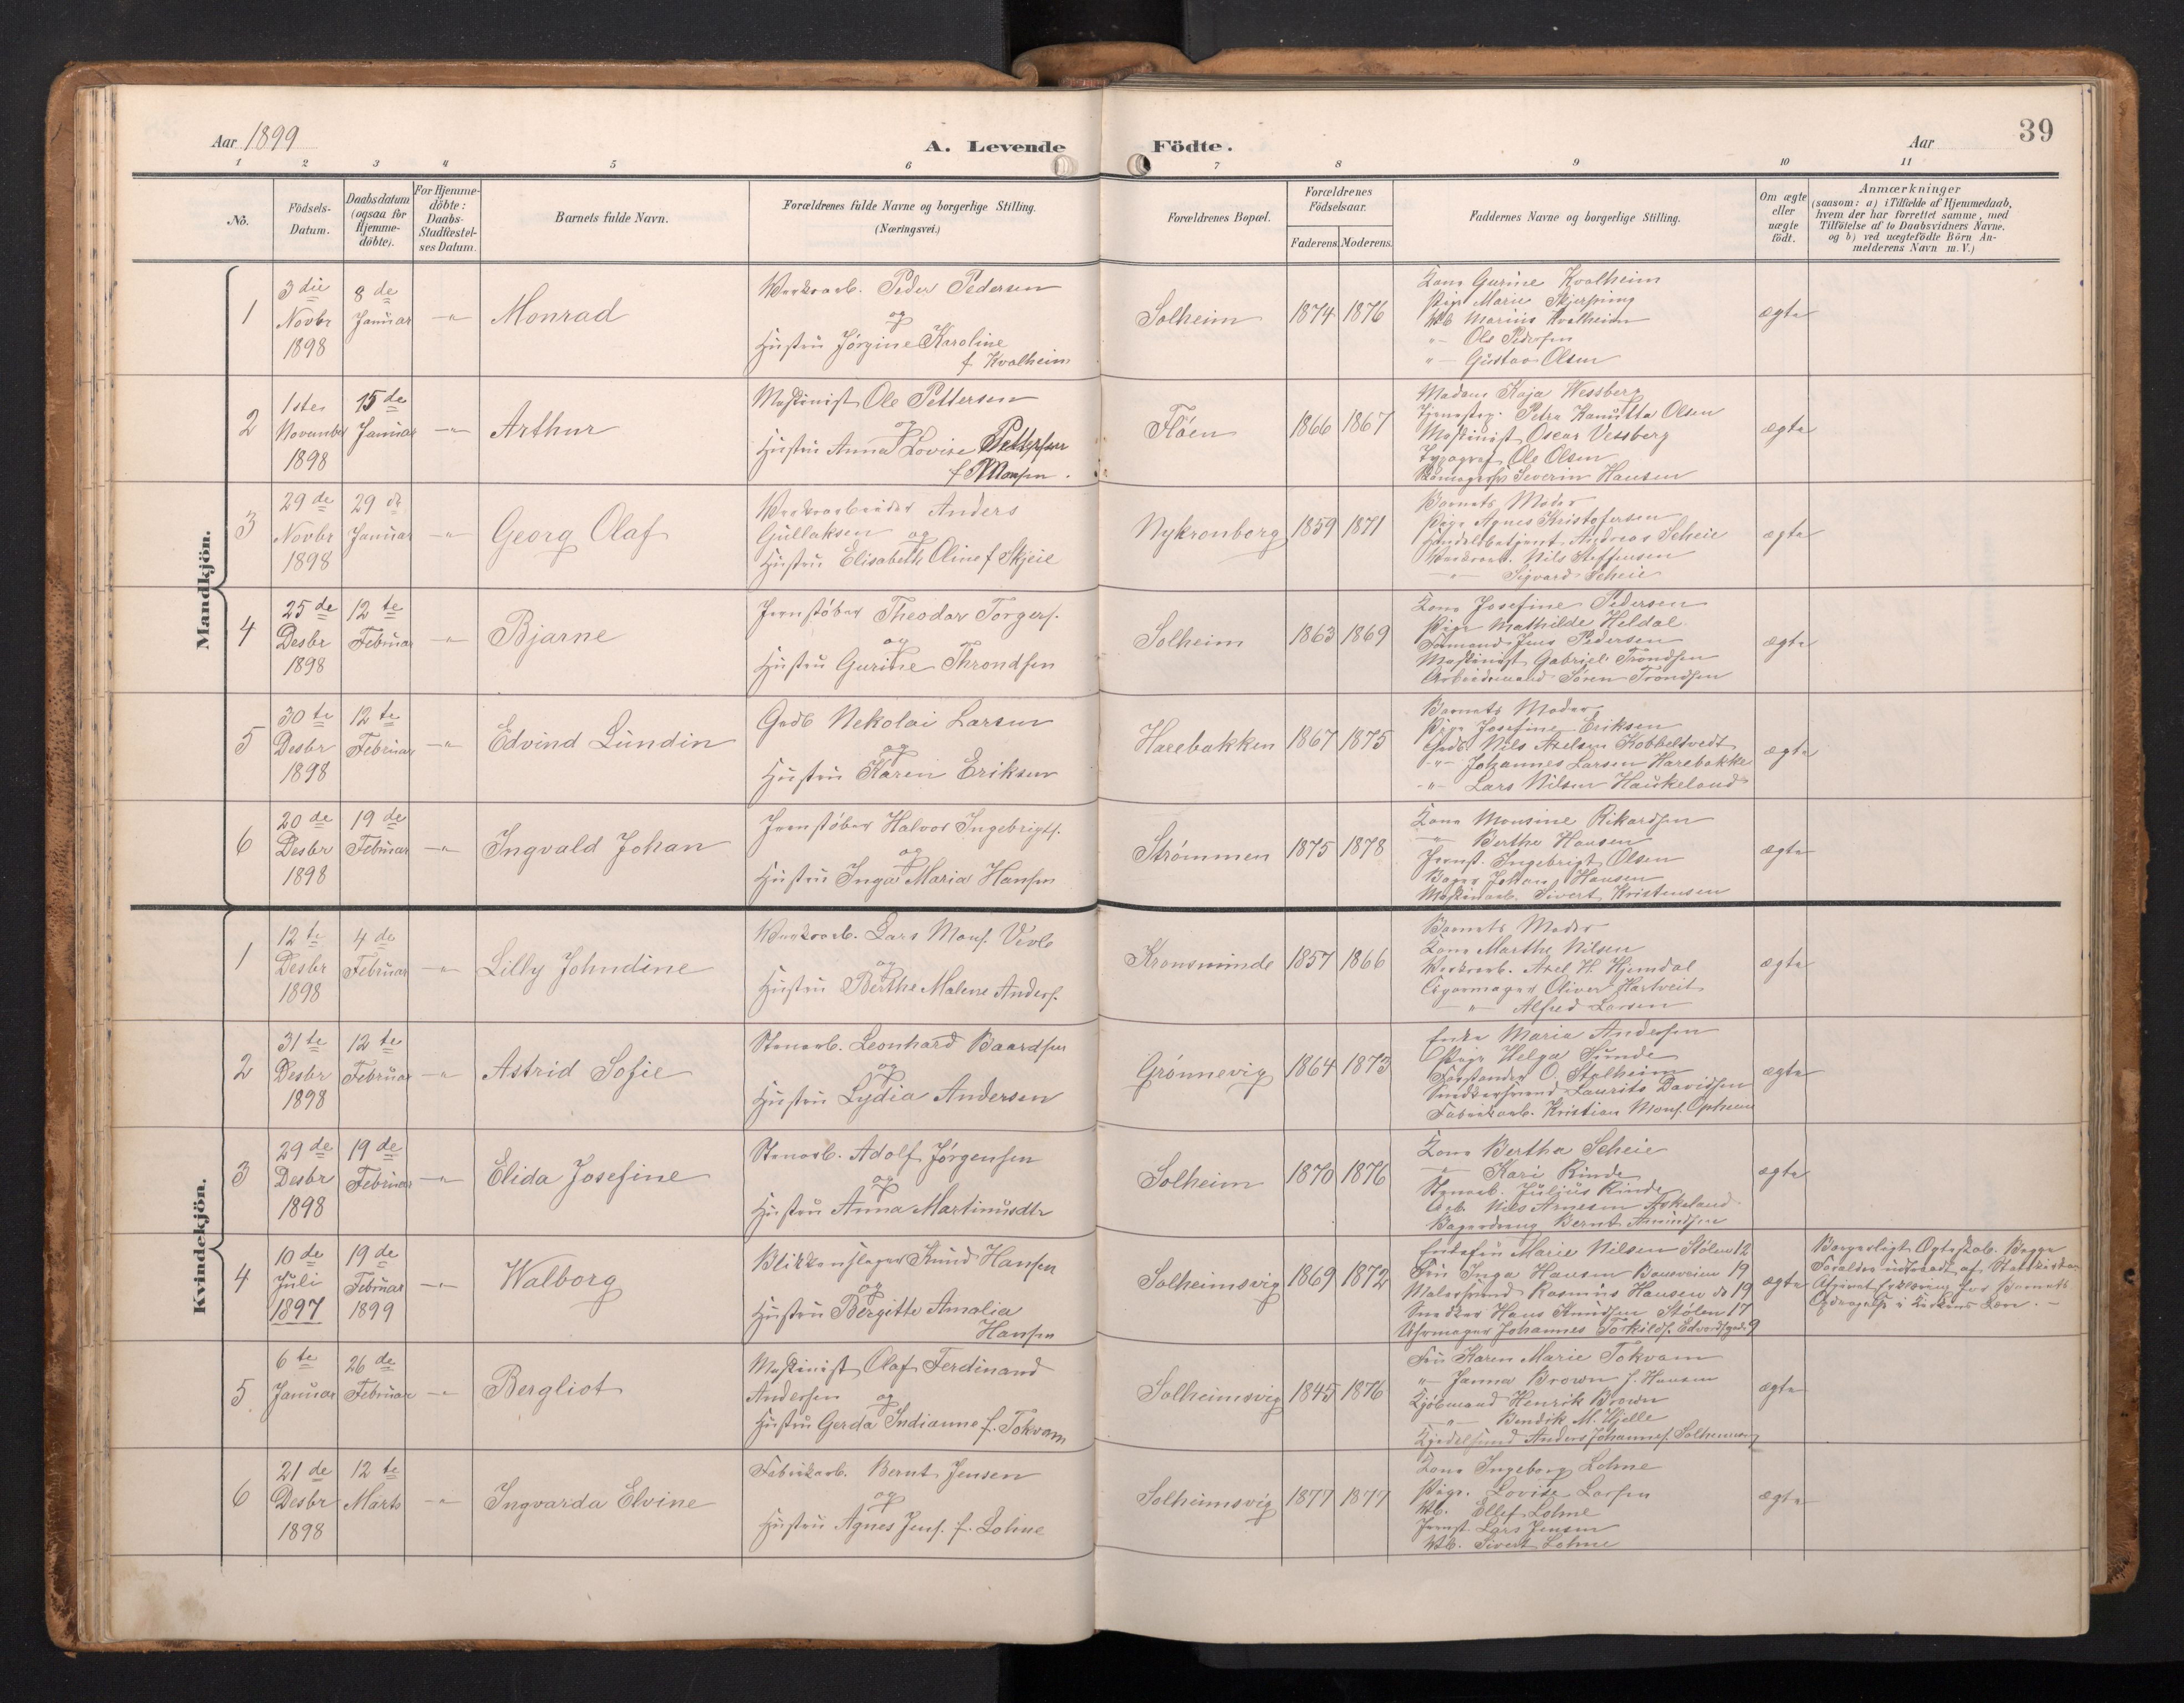 Aar 1899
A. Levende Födte.
Aar
39
1 2 3 4 5 6 7 8 9 10 11
No.
Födsels-
Datum.
Daabsdatum
(ogsaa for
Hjemme-
döbte).
For Hjemme-
döbte:
Daabs-
Stadfæstel-
ses Datum.
Barnets fulde Navn.
Forældrenes fulde Navne og borgerlige Stilling.
(Næringsvei.)
Forældrenes Bopæl.
Forældrenes
Födselsaar.
Faderens. Moderens.
Faddernes Navne og borgerlige Stilling.
Om ægte
eller
uægte
födt.
Anmærkninger
(saasom: a) i Tilfælde af Hjemmedaab,
hvem der har forrettet samme, med
Tilföielse af to Daabsvidners Navne,
og b) ved uægtefödte Börn An-
melderens Navn m. V.)
Mandkjön.
1
3 die
Novbr
1898
8 de
Januar
Monrad
Værksarb. Peder Pedersen
og
Hustru Jørgine Karoline
f. Kvalheim
Solheim
1874 1876
Kone Gurine Kvalheim
Pige Marie Skjerping
Marius Kvalheim
Ole Pedersen
Gustav Olsen
ægte
2
1ste
November
1898
15 de
Januar
Arthur
Maskinist Ole Pettersen
og
Hustru Anna Lovise Pettersen
f. Monsen.
Fløen
1866 1867
Madam Kaja Wessberg
Petra Kanutta Olsen
Maskinist Oscar Vessberg
Typograf Ole Olsen
Severin Hansen
ægte
3
29 de
Novbr
1898
29 de
Januar
Georg Olaf
Værksarbeider Anders
Gullaksen og
Hustru Elisabeth Oline f Skjeie
Nykronborg
1859 1871
Barnets Moder
Pige Agnes Kristofersen
Handelsbetjent Andreas Scheie
Værksarb. Nils Steffensen
Sigvard Scheie
ægte
4
25 de
Desbr
1898
12 te
Februar
Bjarne
Jernstøber Theodor Torgers.
og
Hustru Gurine Throndsen
Solheim
1863 1869
Kone Josefine Pedersen
Pige Mathilde Heldal
Formand Jens Pedersen
Maskinist Gabriel Trondsen
Arbeidsmand Søren Trondsen
ægte
5
30 te
Desbr
1898
12 te
Februar
Edvind Lundin
Gadb Nekolai Larsen
og
Hustru Karen Eriksen
Harebakken
1867 1875
Barnets Moder
Pige Josefine Eriksen
Gadb Nils Axelsen Kobbeltvedt
Johannes Larsen Harebakke
Lars Nilsen Haukeland
ægte
6
20 de
Desbr
1898
19 de
Februar
Ingvald Johan
Jernstøber Halvor Ingebrigts.
og
Hustru Inga Maria Hansen
Strømmen
1875 1878
Kone Monsine Rikardsen
Berthe Hansen
Jernst. Ingebrigt Olsen
Bager Johan Hansen
Maskinarb. Sivert Kristensen
ægte
Kvindekjön.
1
12 te
Desbr
1898
4 de
Februar
Lilly Johndine
Værksarb. Lars Mons. Vevle
og
Hustru Berthe Malene Anders.
Kronsminde
1857 1866
Barnets Moder
Kone Marthe Nilsen
Værksarb. Axel H. Hjemdal
Cigarmager Oliver Hartveit
Alfred Larsen
ægte
2
31 te
Desbr
1898
12 te
Februar
Astrid Sofie
Stenarb. Leonhard Baardsen
og
Hustru Lydia Andersen
Grønnevig
1864 1873
Enke Maria Andersen
Pige Helga Sunde
Forstander O. Stalheim
Snedkersvend Laurits Davidsen
Fabrikarb. Kristian Mons. Opheim
ægte
3
29 de
Desbr
1898
19 de
Februar
Elida Josefine
Stenarb. Adolf Jørgensen
og
Hustru Anna Martinusdtr
Solheim
1870 1876
Kone Bertha Scheie
Kari Rinde
Stenarb. Julius Rinde
Nils Arnesen Askeland
Bagerdreng Bernt Amundsen
ægte
4
10 de
Juli
1897
19 de
Februar
1899
Walborg
Blikkenslager Knud Hansen
og
Hustru Bergitte Amalia
Hansen
Solheimsvig
1869 1872
Enkefru Marie Nilsen Stølen 12
Fru Inga Hansen Bansveien 19
Malersvend Rasmus Hansen do 19
Snedker Hans Knudsen Stølen 17
Uhrmager Johannes Torkilds. Edvardsgade 9
ægte
Borgerligt Ægteskab. Begge
Forældre udtraadt af Statskirken
Afgivet Erklæring for Barnets
Opdragelse i Kirkens Lære. –
5
6 te
Januar
26 de
Februar
Bergliot
Maskinist Olaf Ferdinand
Andersen og
Hustru Gerda Indianne f. Tokvam
Solheimsvig
1845 1876
Fru Karen Marie Tokvam
Janna Brown f. Hansen
Kjøbmand Henrik Brown
Bendik M. Hjelle
Kjedelsmed Anders Johannes. Solheimsvig
ægte
6
21 de
Desbr
1898
12 te
Marts
Ingvarda Elvine
Fabrikarb. Bernt Jensen
og
Hustru Agnes Jens. f. Lohne
Solheimsvig
1877 1877
Kone Ingeborg Lohne
Pige. Lovise Larsen
Ellef Lohne
Jernst Lars Jensen
Sivert Lohne
ægte